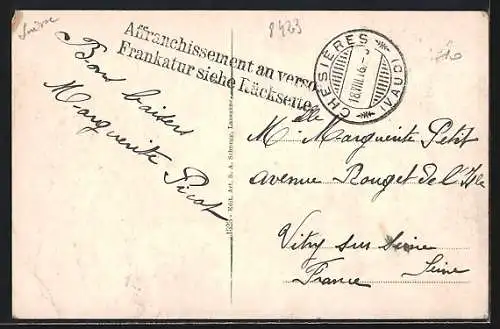 Suisse
8423
Affranchissement au verso
Frankatur siehe Rückseite
CHESIERES (VAUD)
18.VIII.16.-
Bons baisers
Marguerite Picot
Edit. Art. S. A. Schnegg, Lausanne
Mlle Marguerite Petit
avenue Rouget de l'Isle
Vitry sur Seine
Seine
France